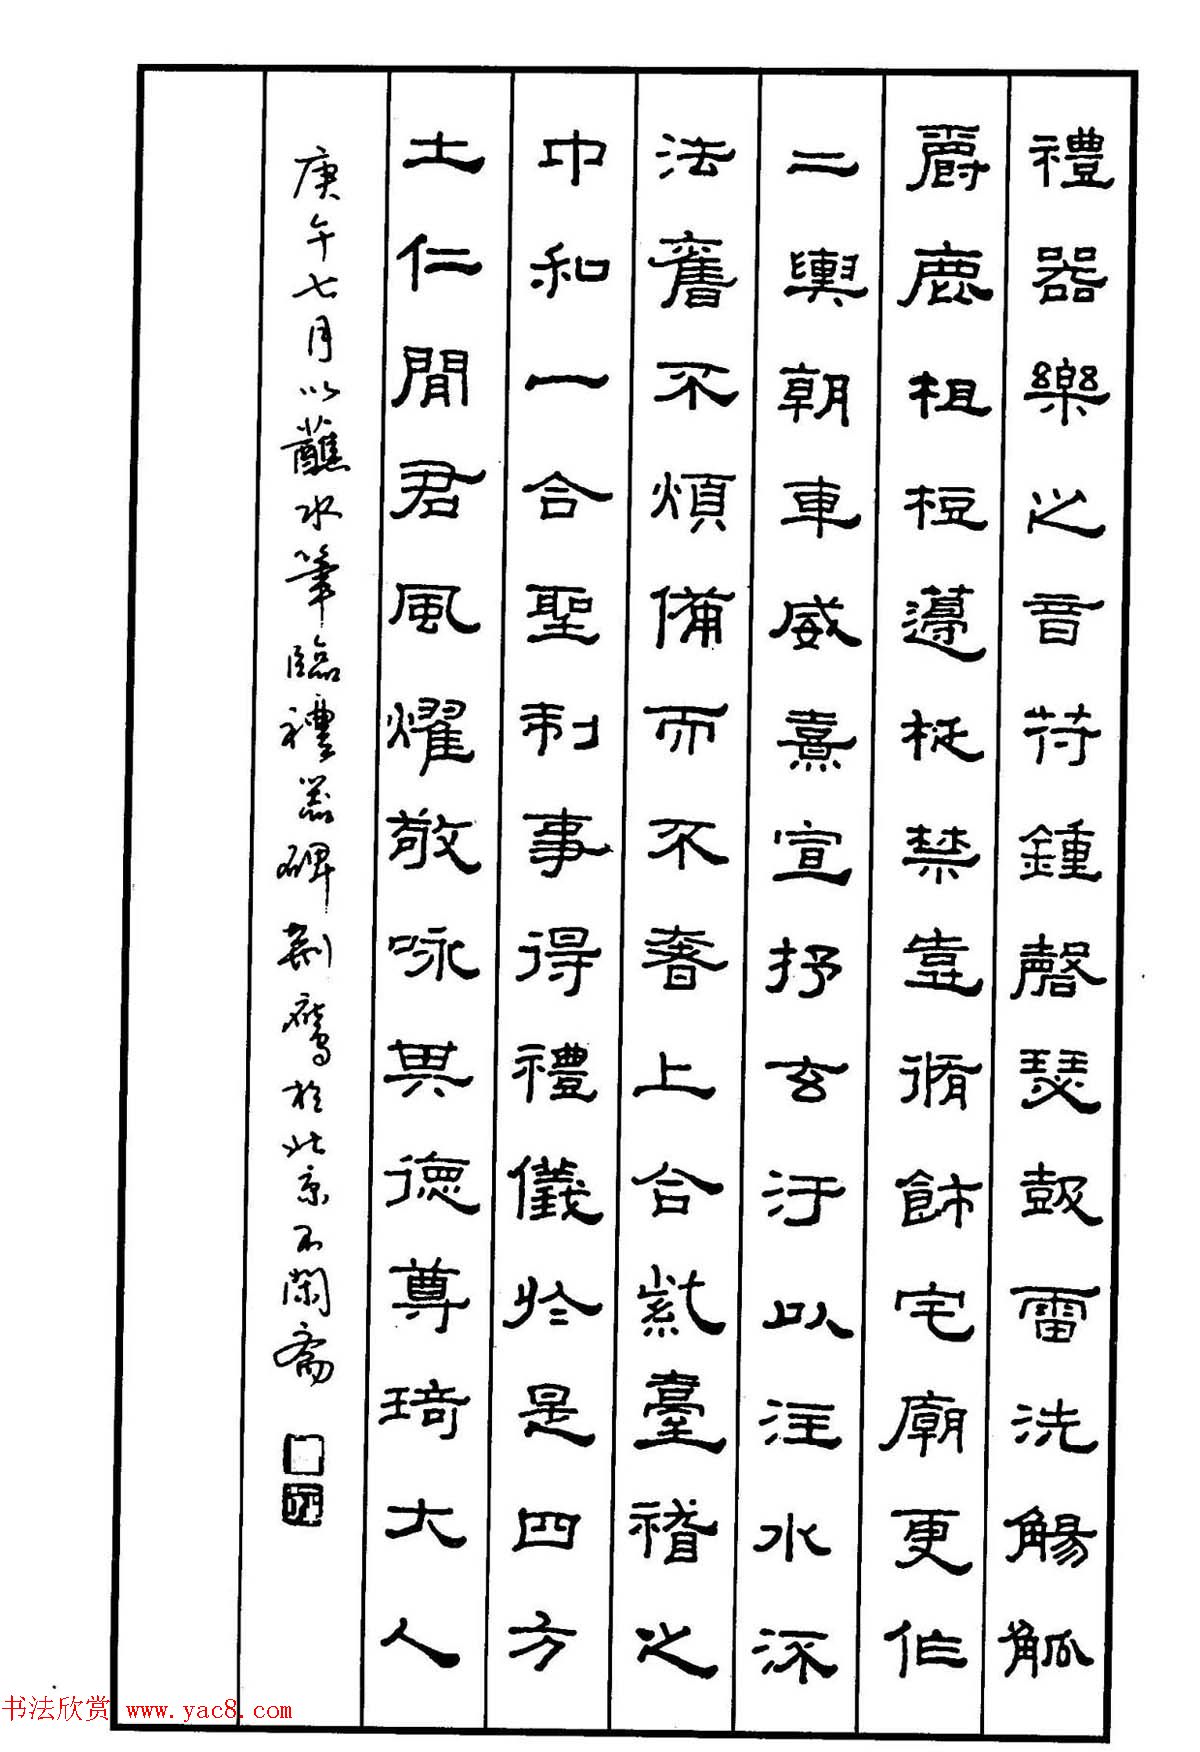 禮器樂之音苻鍾磬瑟鼓雷洗觴觚
爵鹿柤梪籩柉禁壼脩飾宅廟更作
二輿朝車威熹宣抒玄汙以注水流
法舊不煩備而不奢上合紫臺稽之
中和下合聖制事得禮儀於是四方
土仁聞君風燿敬咏其德尊琦大人
庚午七月以蘸水筆臨禮器碑荊鹰於北京不閑斋
书法欣赏 www.yac8.com